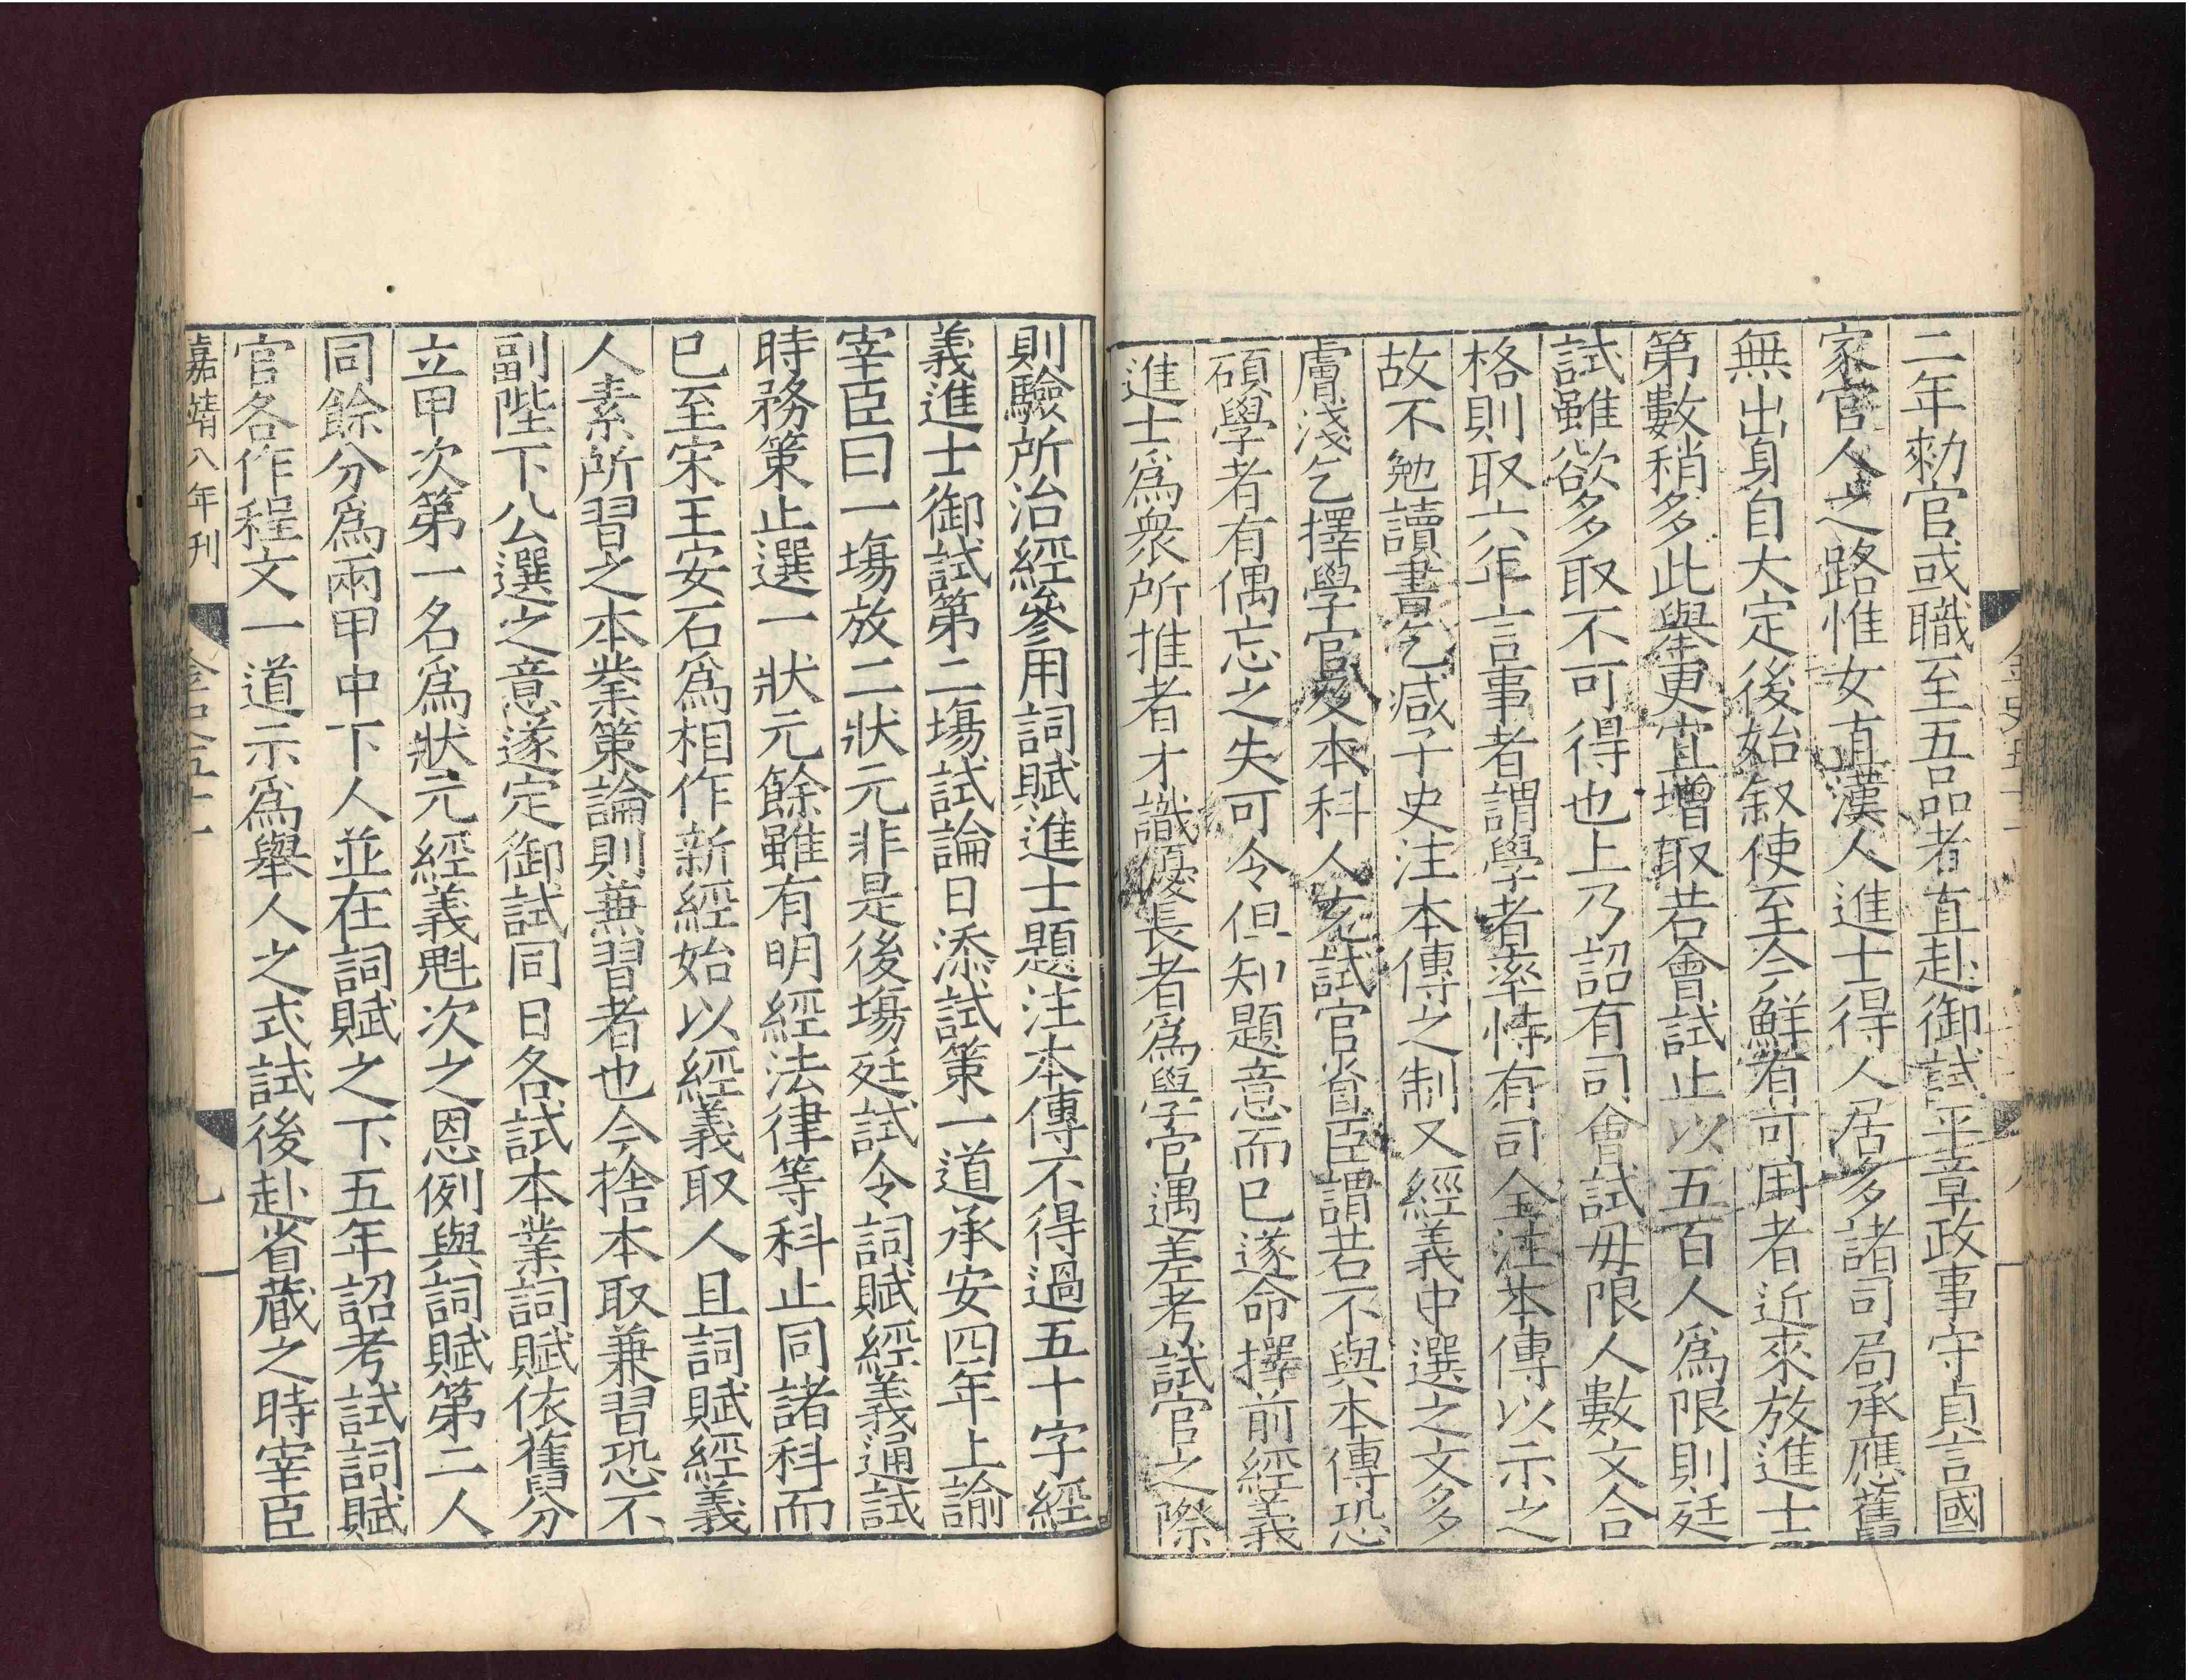 二年勑官或職至五品者直赴御試平章政事守貞言國
家官人之路惟女直漢人進士得人居多諸司局承應舊
無出身自大定後始叙使至今鮮有可用者近來放進士
第數稍多此舉更宜增取若會試止以五百人爲限則廷
試雖欲多取不可得也上乃詔有司會試毋限人數文合
格則取六年言事者謂學者率恃有司全注本傳以示之
故不勉讀書乞減子史注本傳之制又經義中選之文多
膚淺乞擇學官及本科人充試官省臣謂若不與本傳恐
碩學者有偶忘之失可令但知題意而已遂命擇前經義
進士爲衆所推者才識優長者爲學官遇差考試官之際
則驗所治經參用詞賦進士題注本傳不得過五十字經
義進士御試第二場試論日添試策一道承安四年上諭
宰臣曰一場放二狀元非是後場廷試令詞賦經義通試
時務策止選一狀元餘雖有明經法律等科止同諸科而
已至宋王安石爲相作新經始以經義取人且詞賦經義
人素所習之本業策論則兼習者也今捨本取兼習恐不
副陛下公選之意遂定御試同日各試本業詞賦依舊分
立甲次第一名爲狀元經義魁次之恩例與詞賦第二人
同餘分爲兩甲中下人並在詞賦之下五年詔考試詞賦
官各作程文一道示爲舉人之式試後赴省藏之時宰臣
嘉靖八年刊
金史五十一
九